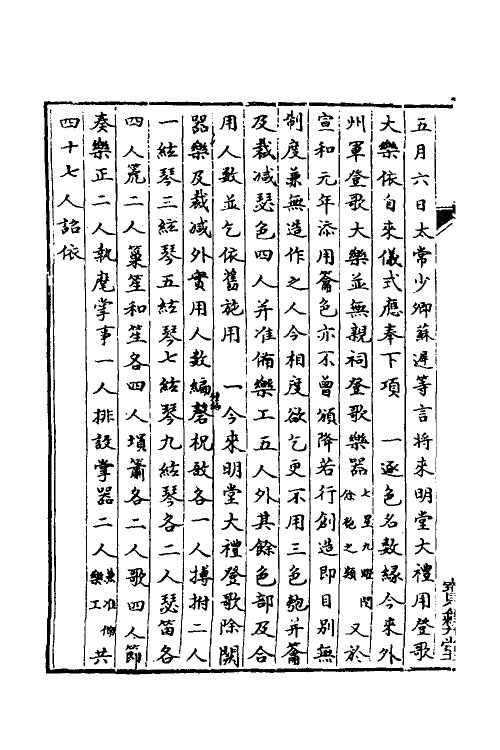 五月六日太常少卿蘇遲等言將來明堂大禮用登歌
大樂依自來儀式應奉下項　一逐色名數緣今來外
州軍登歌大樂並無親祠登歌樂器七星九曜閏餘匏之類又於
宣和元年添用籥色亦不曾頒降若行創造即目別無
制度兼無造作之人今相度欲乞更不用三色匏并籥
及裁減瑟色四人并准備樂工五人外其餘色部及合
用人數並乞依舊施用　一今來明堂大禮登歌除闕
器樂及裁減外實用人數編磬柷敔各一人搏拊二人
一絃琴三絃琴五絃琴七絃琴九絃琴各二人瑟笛各
四人箎二人巢笙和笙各四人塤簫各二人歌四人節
奏樂正二人執麾掌事一人排設掌器二人兼准備樂工共
四十七人詔依
寶經堂